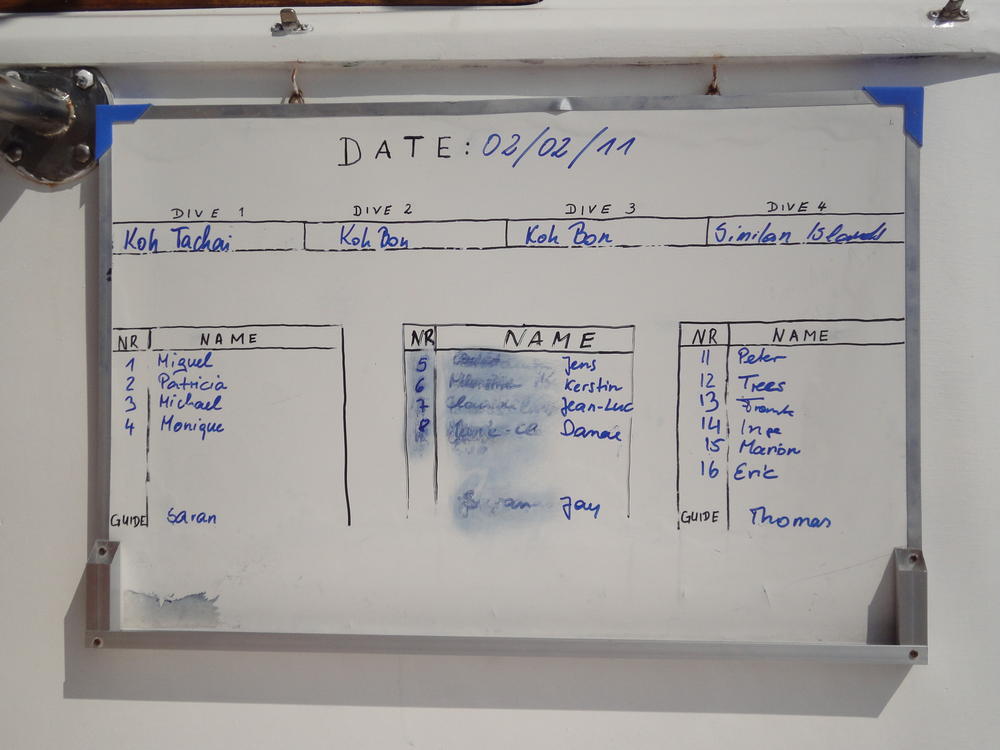 DATE: 02/02/11
DIVE 1 DIVE 2 DIVE 3 DIVE 4
Koh Tachai Koh Bon Koh Bon Similan Islands
NR NAME
1 Miguel
2 Patricia
3 Michael
4 Monique
GUIDE Saran
NR NAME
5 Jens
6 Kerstin
7 Jean-Luc
8 Danae
Jay
NR NAME
11 Peter
12 Trees
13
14 Inge
15 Marion
16 Eric
GUIDE Thomas